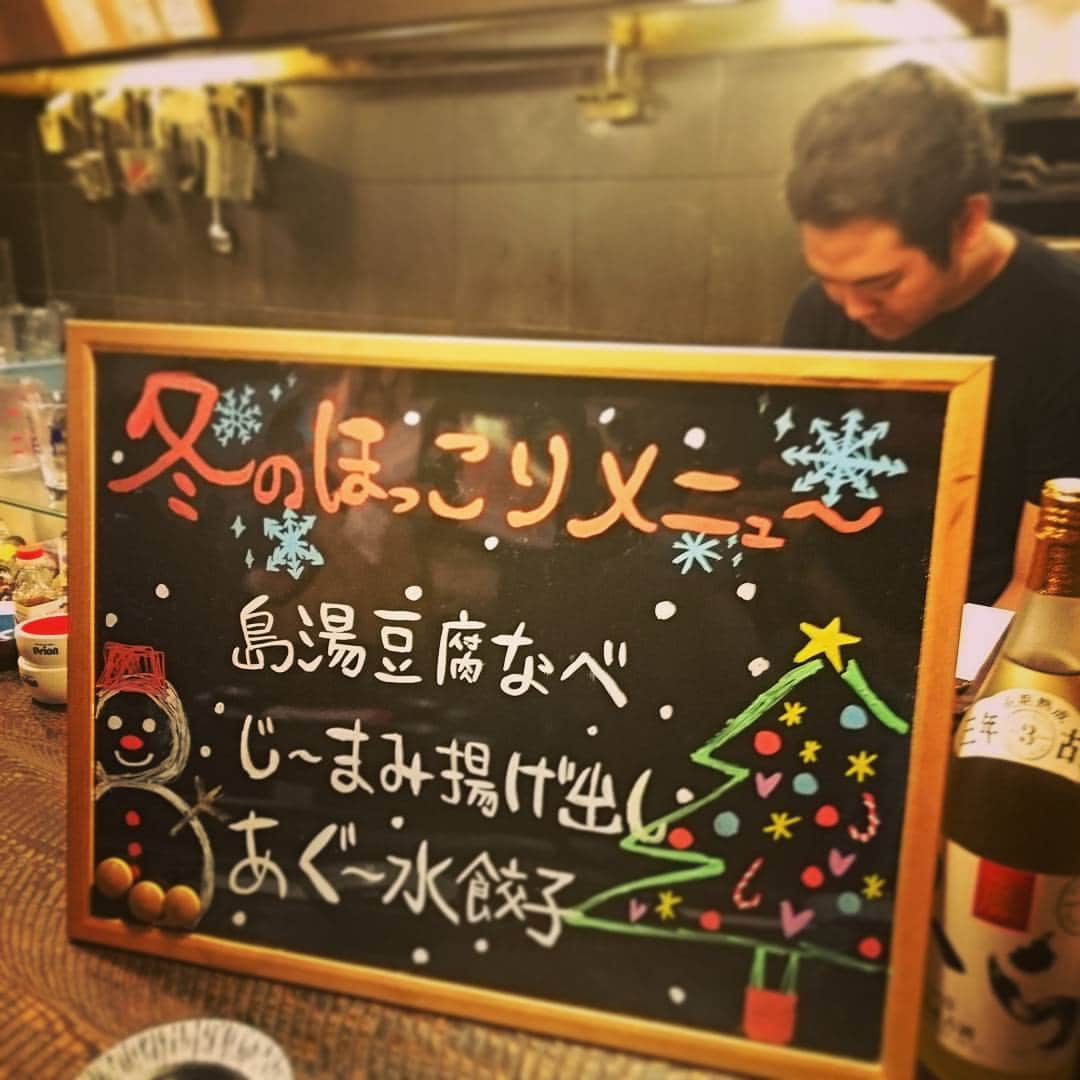 冬のほっこりメニュ〜
島湯豆腐なべ
じ〜まみ揚げ出し
あぐ〜水餃子
Orion
三年 3 古